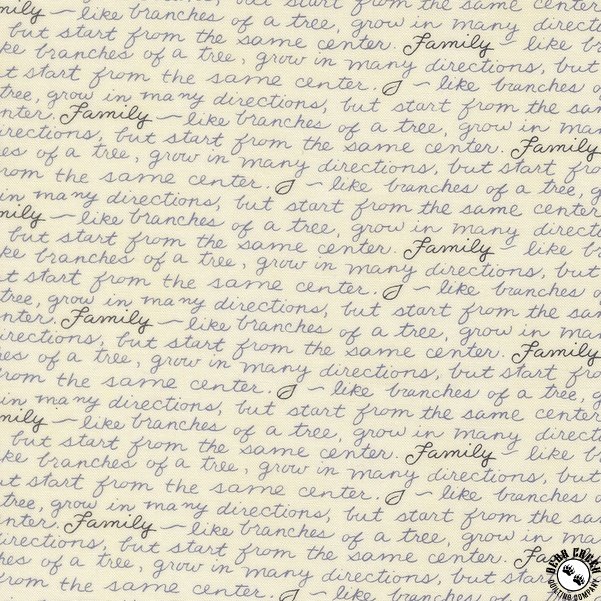 but start from the same center
mily — like branches of a tree, grow in many directi
but start from the same center. Family — like b
ke branches of a tree, grow in many directions, but
t start from the same center. ~ like branches o
tree, grow in many directions, but start from the sa
nter. Family — like branches of a tree, grow in man
irections, but start from the same center. Family
es of a tree, grow in many directions, but start fro
rom the same center. ~ like branches of a tree, g
in many directions, but start from the same center
mily — like branches of a tree, grow in many directi
but start from the same center. Family — like b
ke branches of a tree, grow in many directions, but
t start from the same center. ~ like branches o
tree, grow in many directions, but start from the sa
nter. Family — like branches of a tree, grow in man
irections, but start from the same center. Family
es of a tree, grow in many directions, but start fro
rom the same center. ~ like branches of a tree, g
in many directions, but start from the same center
mily — like branches of a tree, grow in many directi
but start from the same center. Family — like b
ke branches of a tree, grow in many directions, but
ut start from the same center. ~ like branches o
tree, grow in many directions, but start from the sa
enter. Family — like branches of a tree, grow in man
irections, but start from the same center. Fa
hes of a tree, grow in many directions, but start
from the same center. ~ like branches
BEAR CREEK
QUILTING COMPANY